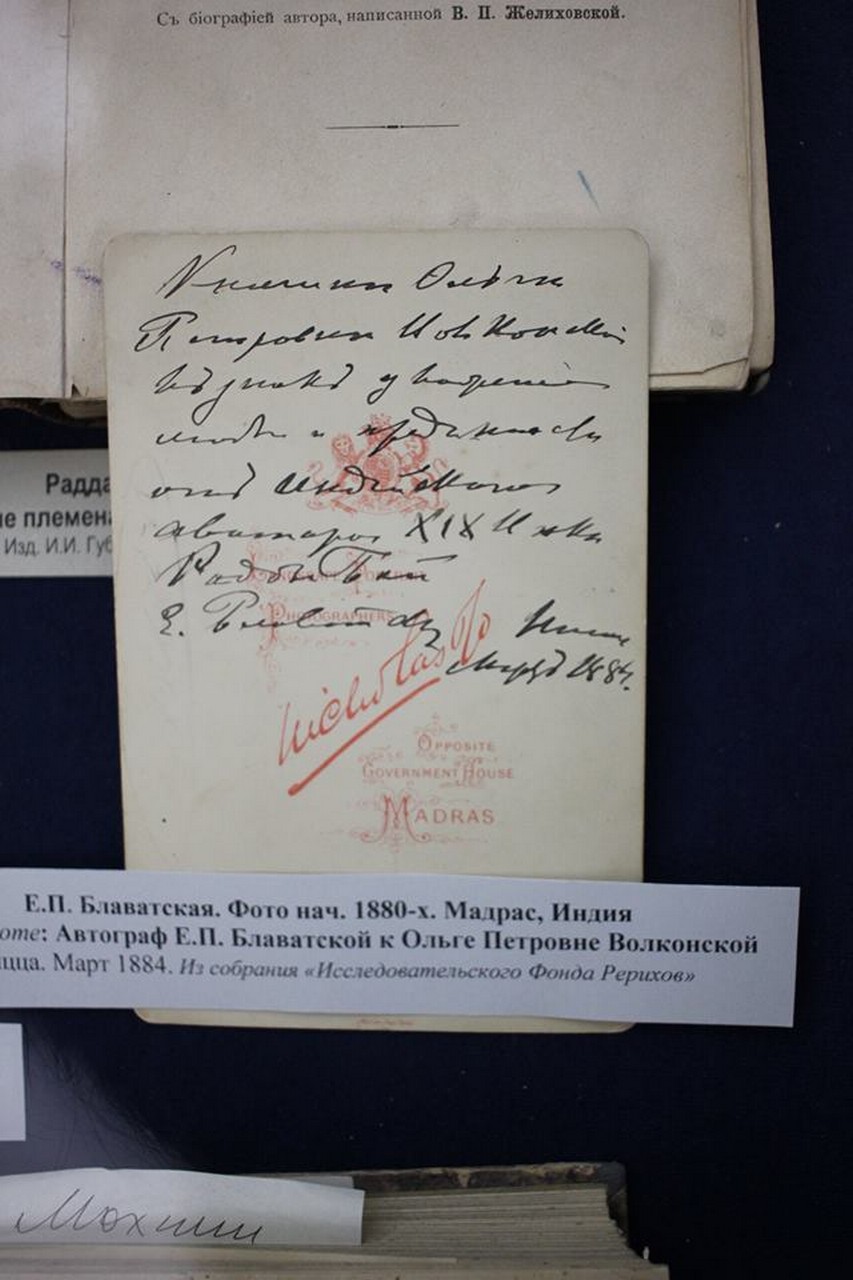 Съ біографіей автора, написанной В. П. Желиховской.
Княгини Ольги
Петровни Волконской
въ знакъ уваженія
и преданности
отъ Индійскаго
аватара XIX Вѣка
Радда Бай
Е. Блаватская
Ницца
Мартъ 1884.
PHOTOGRAPHERS
Nicholas & Co
OPPOSITE
GOVERNMENT HOUSE
MADRAS
Радда
ие племена
Изд. И.И. Губ
Е.П. Блаватская. Фото нач. 1880-х. Мадрас, Индия
оте: Автограф Е.П. Блаватской к Ольге Петровне Волконской
цца. Март 1884. Из собрания «Исследовательского Фонда Рерихов»